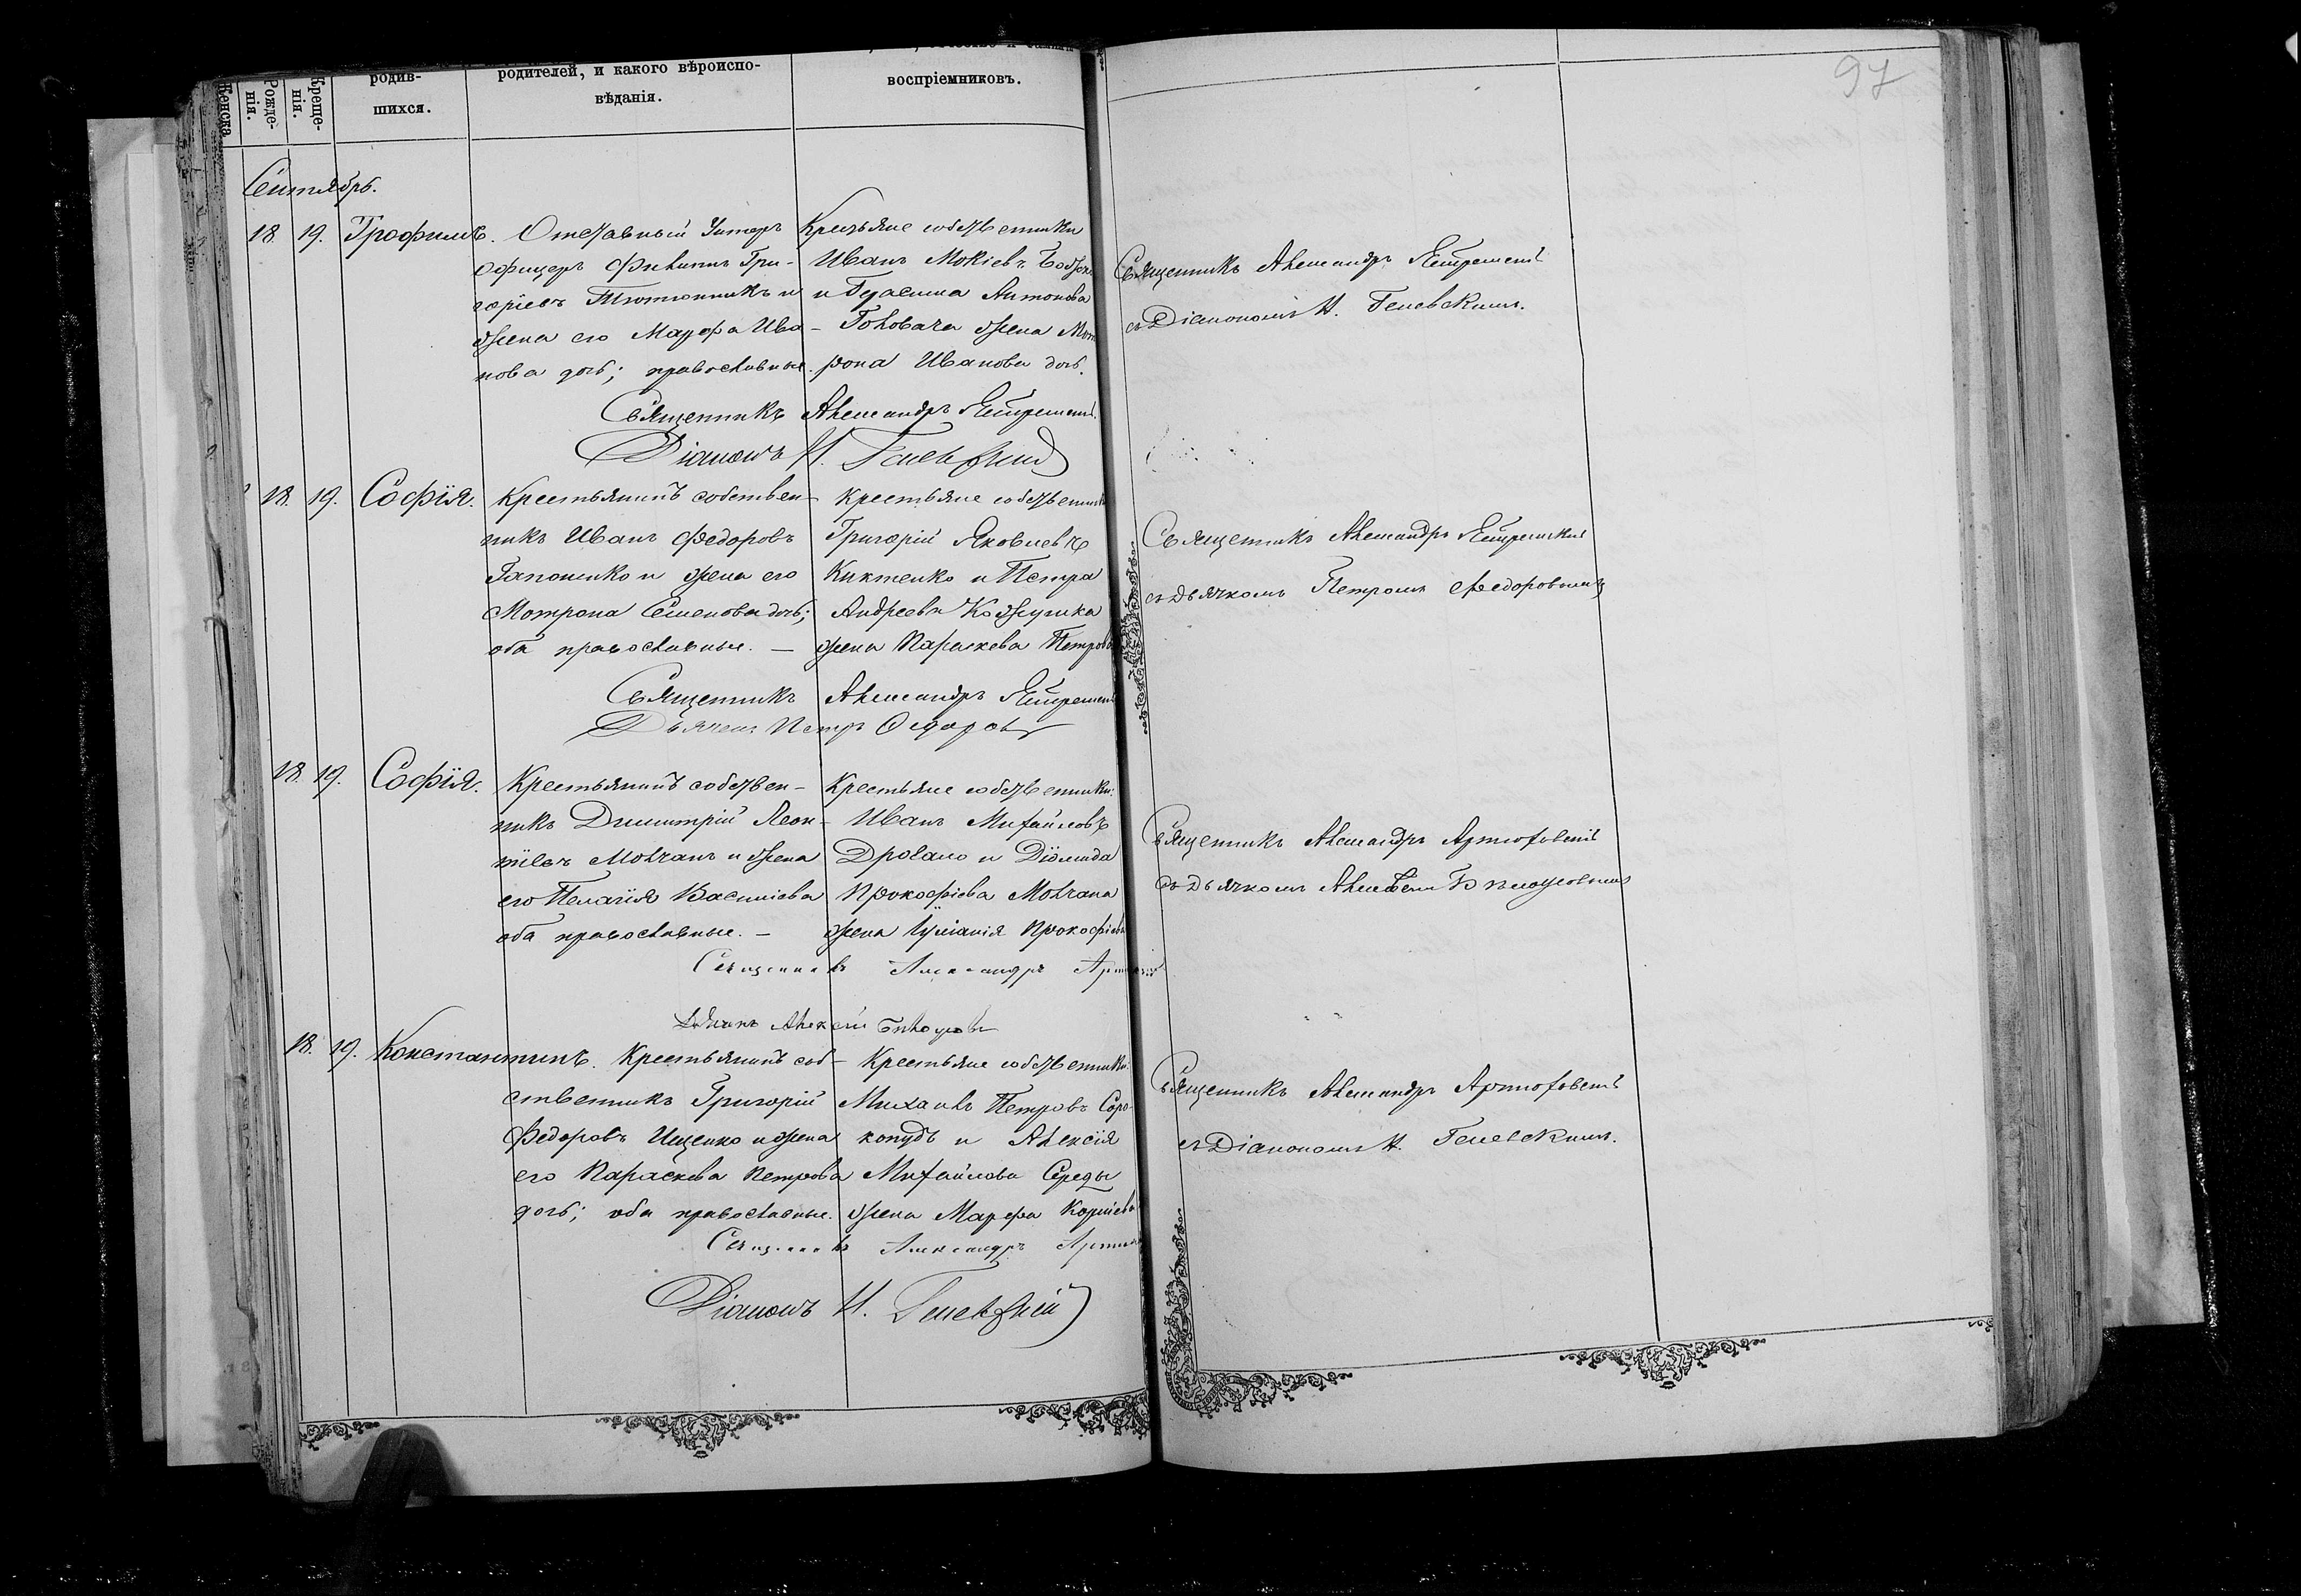 97
Женска
Рожде-
нія.
Креще-
нія.
родив-
шихся.
родителей, и какого вѣроиспо-
вѣданія.
воспріемниковъ.
Сентябрь.
18. 19. Трофимъ.
Отставный Унтеръ
Офицеръ Филиппъ Гри-
горіевъ Тютюнникъ и
жена его Марфа Ива-
нова дочь; православные.
Крестьяне собственники
Иванъ Мокіевъ
и Герасима Антонова
Головача жена Мот
рона Иванова дочь.
Священникъ Александръ
Діаконъ И.
Священникъ Александръ
съ Діакономъ И.
18. 19. Софія.
Крестьянинъ собствен-
никъ Иванъ Федоровъ
Гапоненко и жена его
Мотрона Семенова дочь;
оба православные. —
Крестьяне собственники
Григорій Яковлевъ
Киктенко и Петра
Андреева Кожушка
жена Параскева Петрова
Священникъ Александръ
Дьячекъ Петръ Федоровъ
Священникъ Александръ
съ дьячкомъ Петромъ Федоровымъ
18. 19. Софія.
Крестьянинъ собствен-
никъ Димитрій Леон-
тіевъ Молчанъ и жена
его Пелагія Василіева
оба православные. —
Крестьяне собственники:
Иванъ Михайловъ
и Діомида
Прокофіева Молчана
жена Іуліанія Прокофіева
Священникъ Александръ
Дьячекъ Алексѣй Бѣлоусовъ
Священникъ Александръ Артюховскій
съ дьячкомъ Алексѣемъ Бѣлоусовымъ
18. 19. Константинъ.
Крестьянинъ соб-
ственникъ Григорій
Федоровъ Ищенко и жена
его Параскева Петрова
дочь; оба православные.
Крестьяне собственники
Михаилъ Петровъ Соро-
копудъ и Алексія
Михайлова Середы
жена Марфа Корніева
Священникъ Александръ
Діаконъ И.
Священникъ Александръ Артюховскій
съ Діакономъ И.